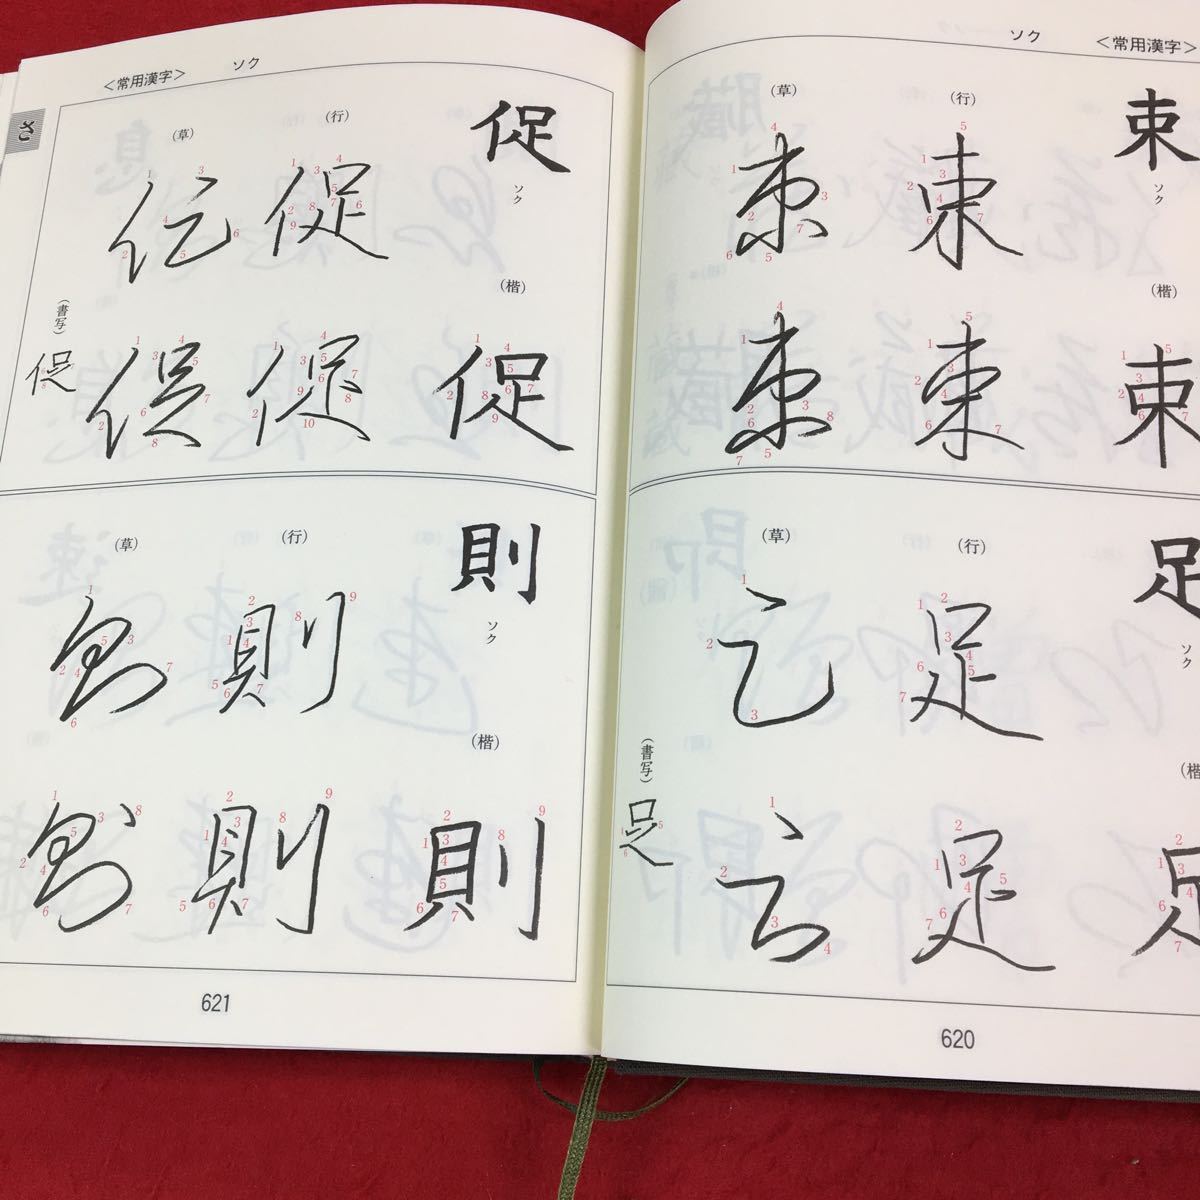 ソク <常用漢字>
束
ソク
(行)
(草)
(楷)
束 束
束 束 束
足
ソク
(行)
(草)
(楷
足 足
(書写)
足
足 足 足
620
<常用漢字> ソク
さ
促
ソク
(行)
(草)
(楷)
促 促
(書写)
促
促 促 促
則
ソク
(行)
(草)
(楷)
則 則
則 則 則
621